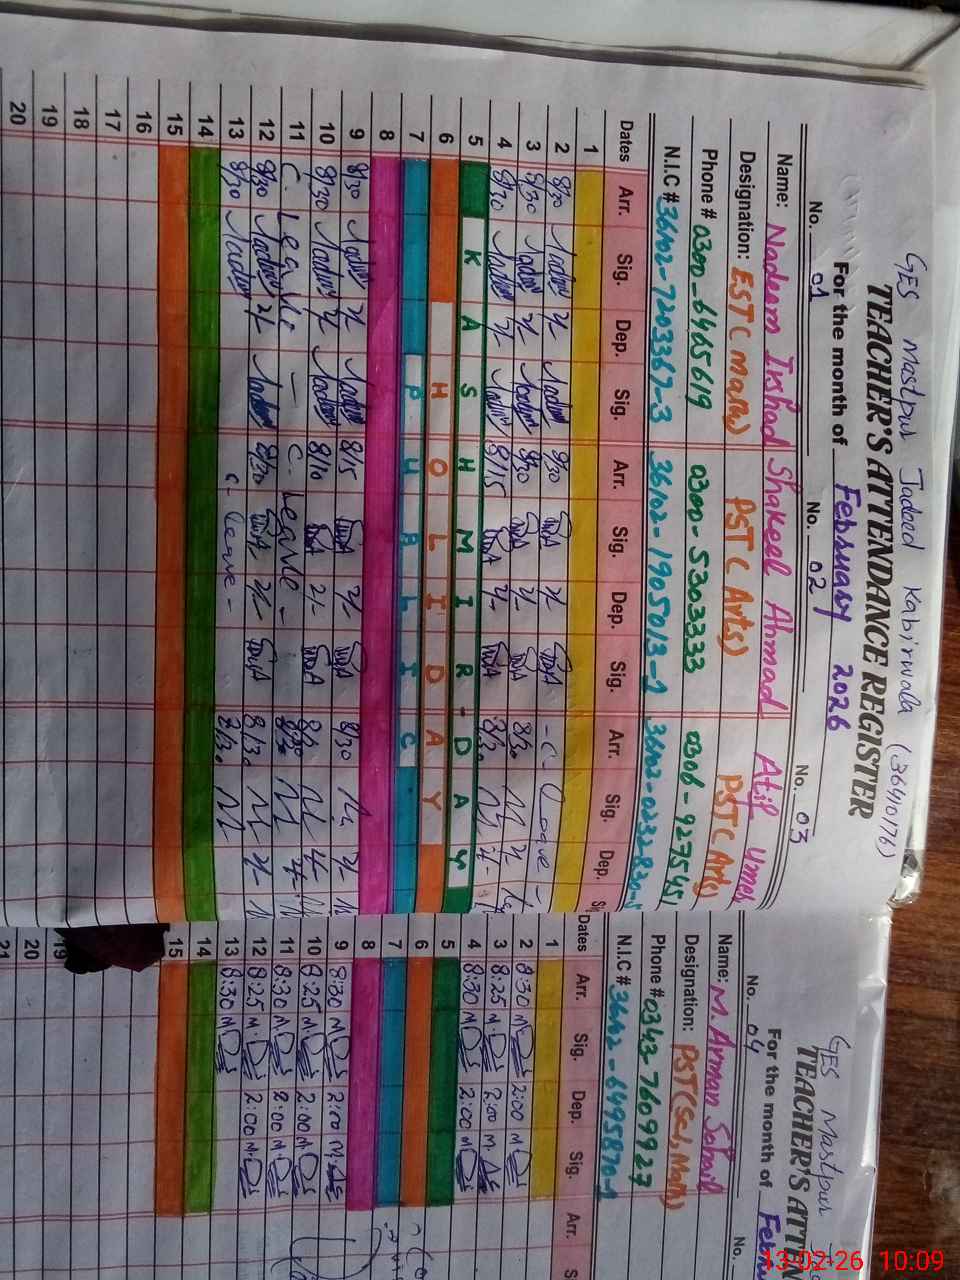 GES Mastpur Jadeed Kabirwala (36410176)
TEACHER'S ATTENDANCE REGISTER
For the month of February 2026
No. 01 No. 02 No. 03
Name: Nadeem Irshad Shakeel Ahmad Atif Umer
Designation: EST (Math) PST (Arts) PST (Arts)
Phone # 0300-6465619 0300-5303333 0306-9275451
N.I.C # 36102-7203367-3 36102-1905013-1
Dates Arr. Sig. Dep. Sig. Arr. Sig. Dep. Sig. Arr. Sig. Dep.
1
2 8/30 8/30 -C- Leave -
3 8/30 8/30 8/30
4 8/30 8/15 8/30
5 KASHMIR-DAY
6 HOLIDAY
7 PUBLIC
8
9 8/30 8/15 8/30
10 8/30 8/10 8/30
11 C. Leave - C. Leave - 8/30
12 8/30 8/30 8/30
13 8/30 C. Leave - 8/30
14
15
16
17
18
19
20
GES Mastpur
TEACHER'S ATTE
For the month of Febru
No. 04 No.
Name: M. Arman Sohail
Designation: PST (Sci, Math)
Phone # 0343-7609927
N.I.C # 36102-6495870-1
Dates Arr. Sig. Dep. Sig. Arr. S
1
2 8:30 2:00
3 8:25 2:00
4 8:30 2:00
5
6
7
8
9 8:30 2:00
10 8:25 2:00
11 8:30 2:00
12 8:25 2:00
13 8:30
14
15
19
20
21
13-02-26 10:09